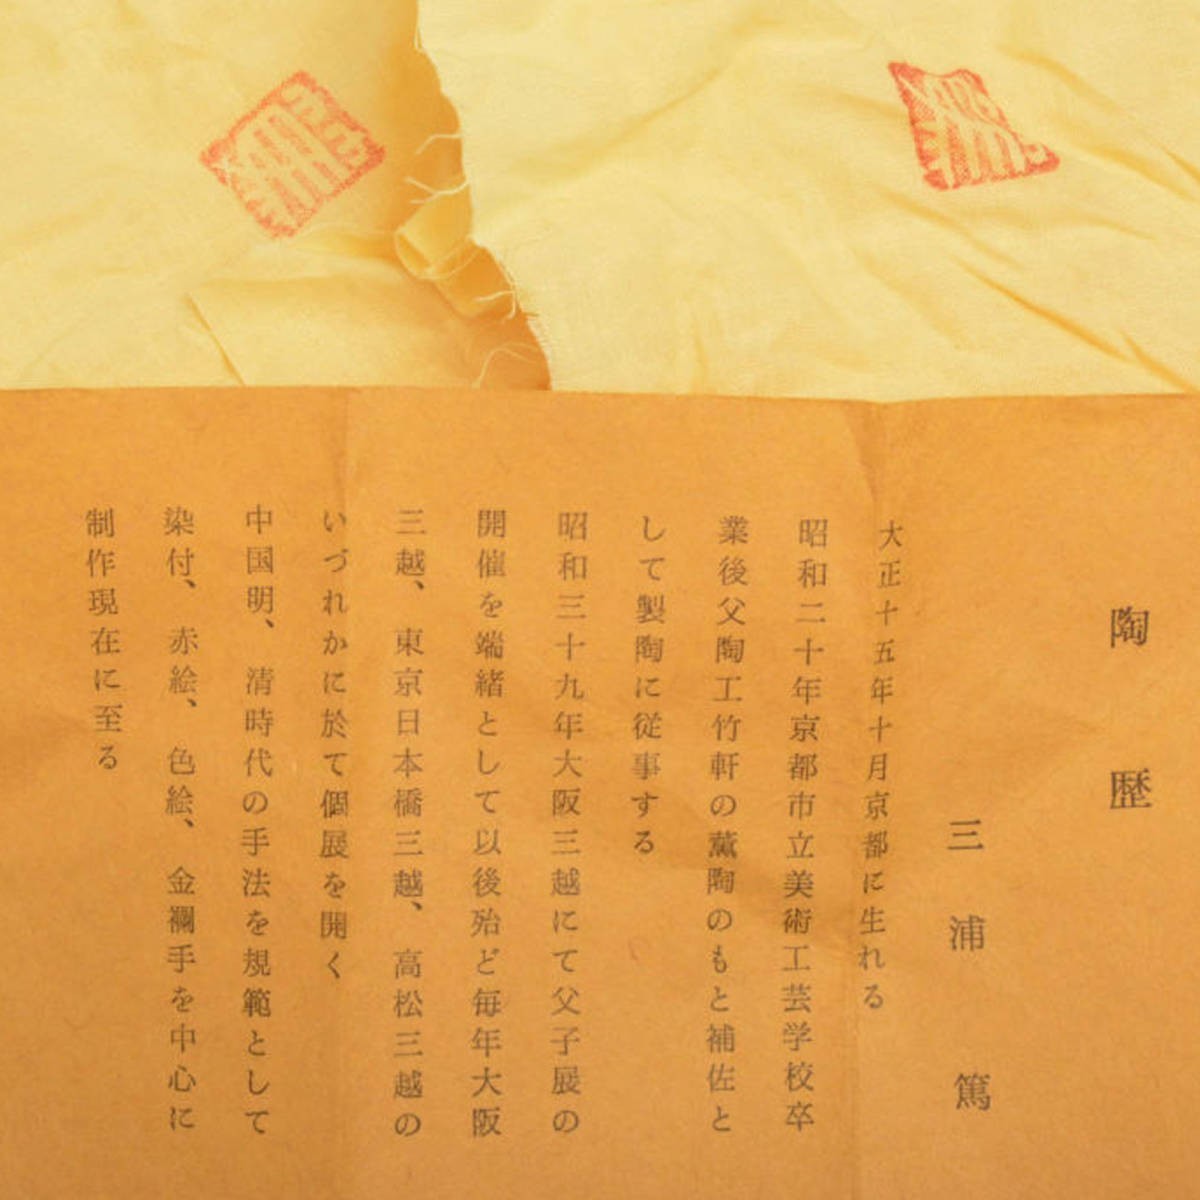 陶歴
三浦篤
大正十五年十月京都に生れる
昭和二十年京都市立美術工芸学校卒
業後父陶工竹軒の薫陶のもと補佐と
して製陶に従事する
昭和三十九年大阪三越にて父子展の
開催を端緒として以後殆ど毎年大阪
三越、東京日本橋三越、高松三越の
いづれかに於て個展を開く
中国明、清時代の手法を規範として
染付、赤絵、色絵、金襴手を中心に
制作現在に至る